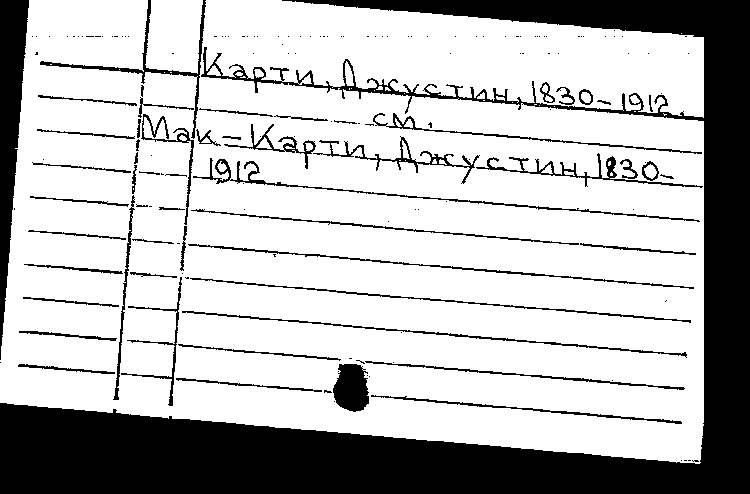 Карти, Джустин, 1830-1912.
см.
Мак=Карти, Джустин, 1830-
1912.